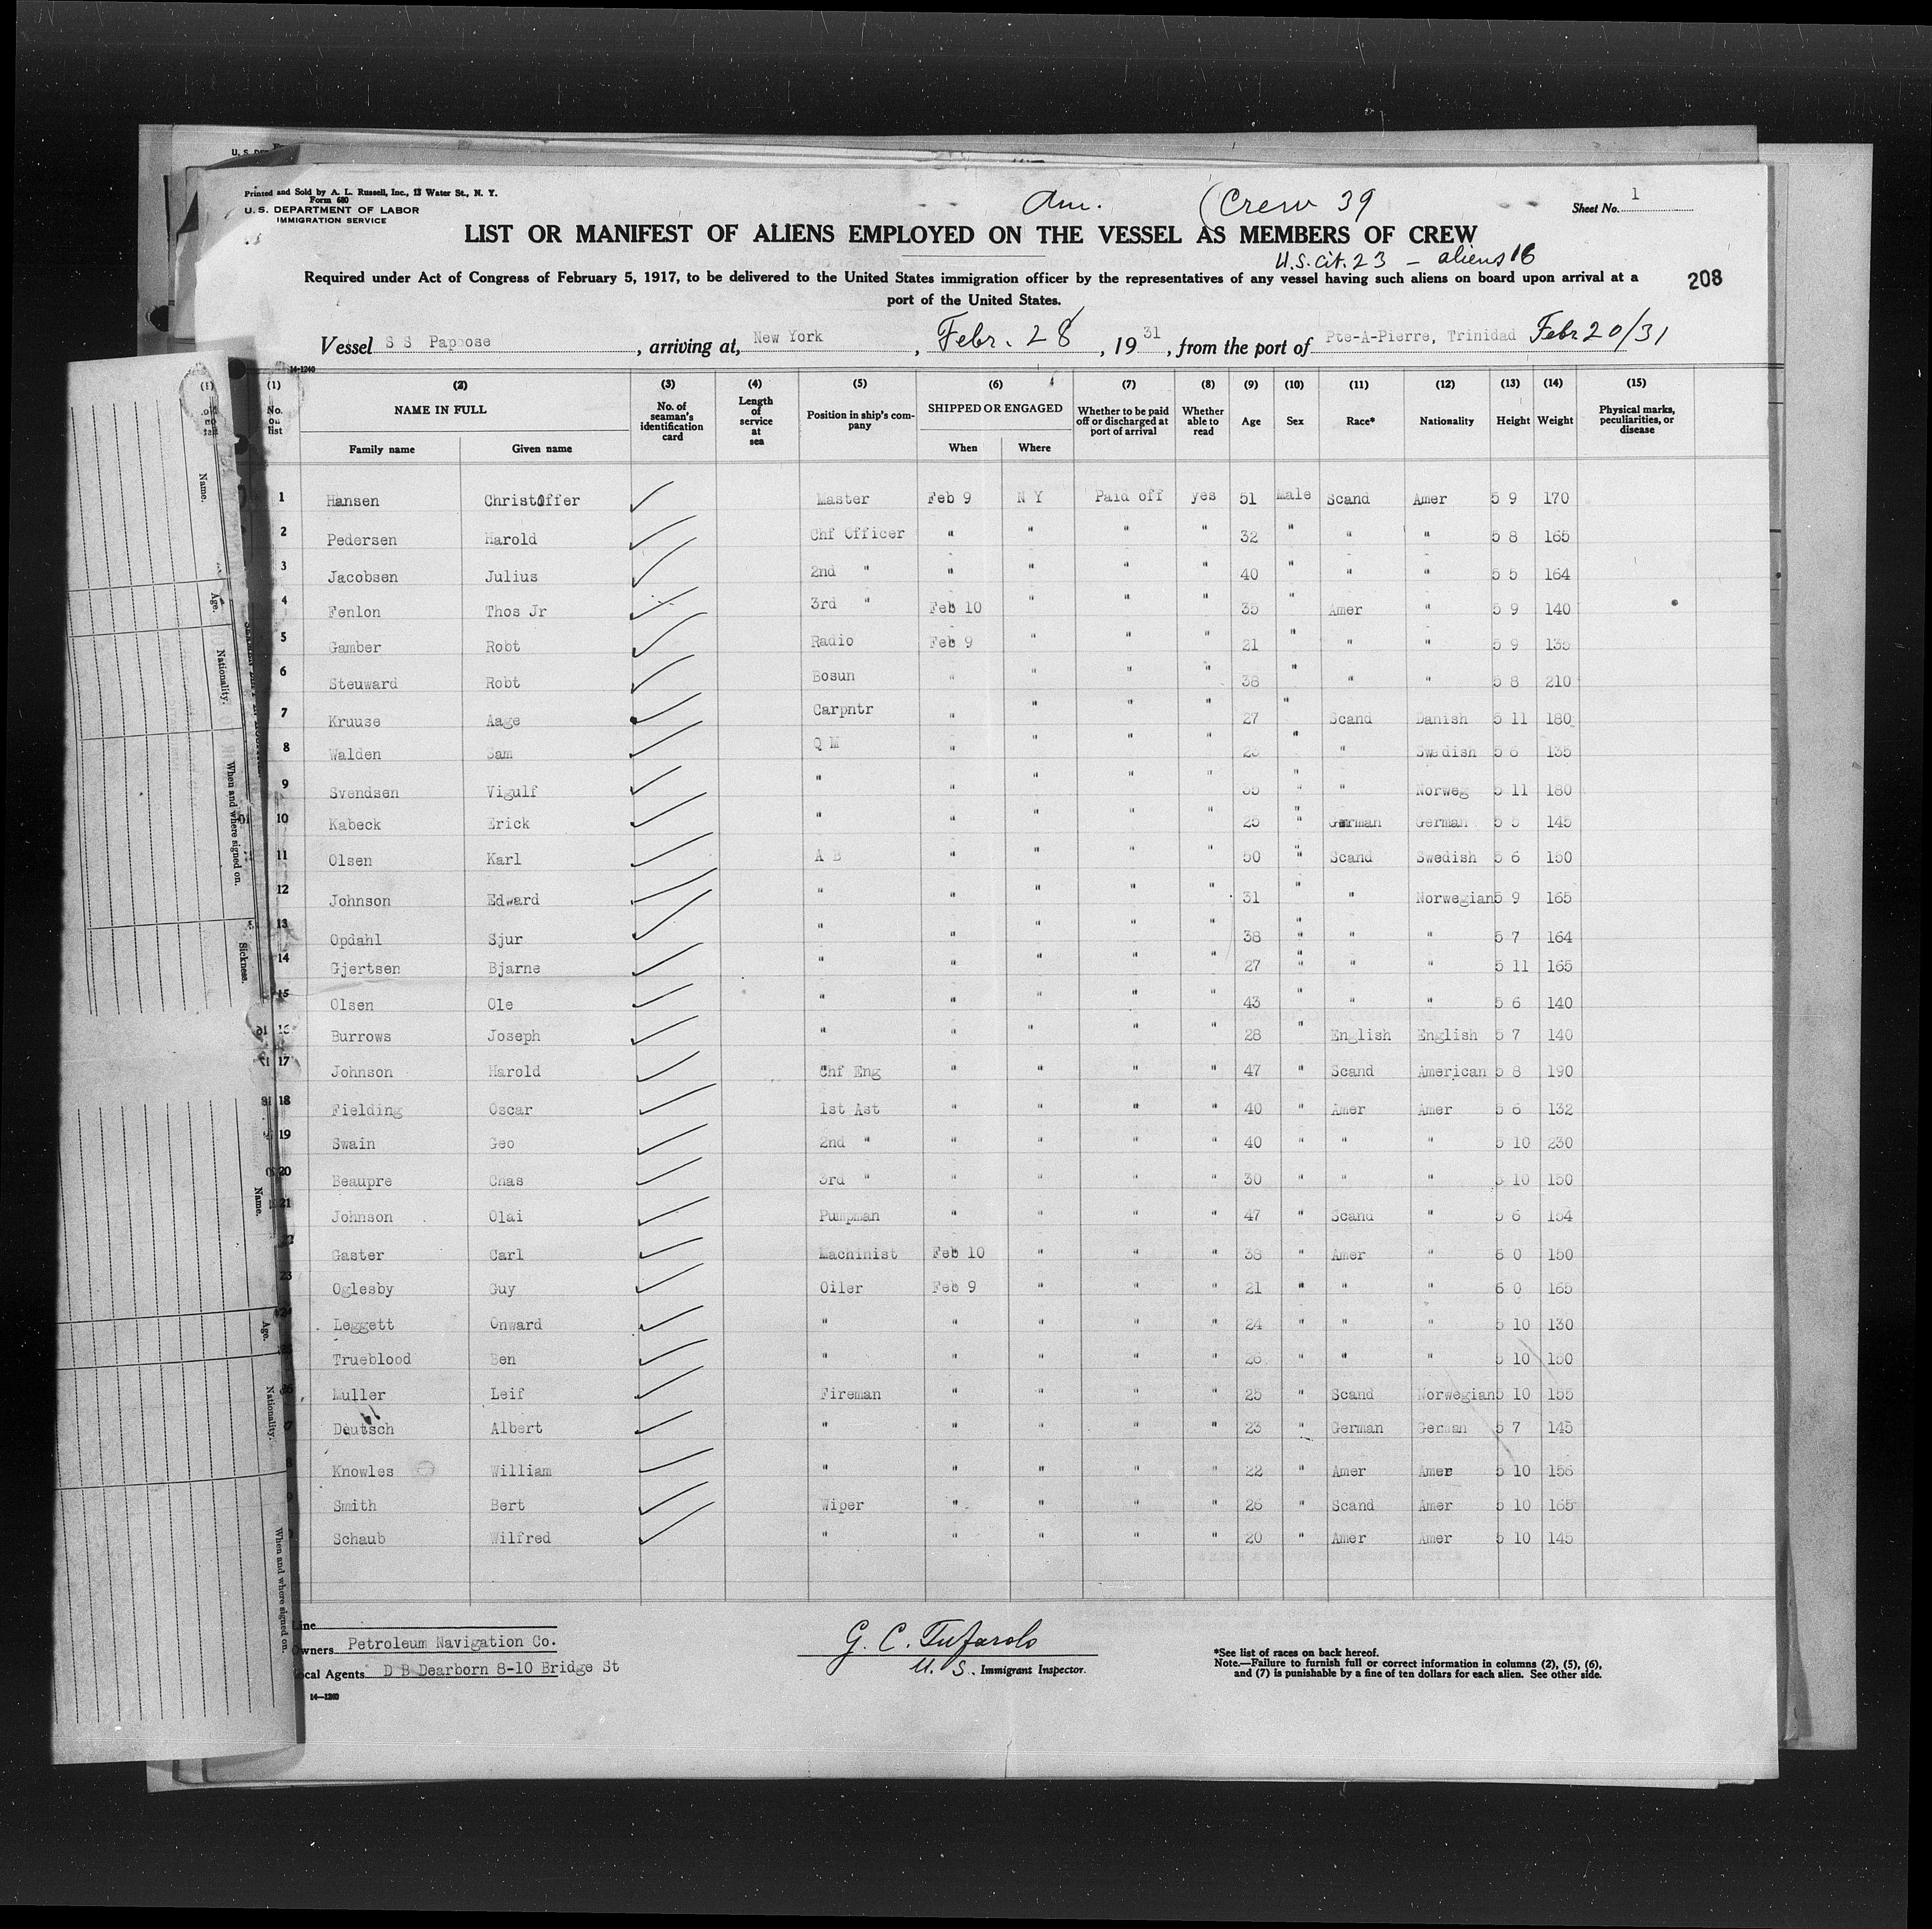 Printed and Sold by A. L. Russell, Inc., 13 Water St., N. Y.
Form 680
U. S. DEPARTMENT OF LABOR
IMMIGRATION SERVICE
Am. (Crew 39
Sheet No. 1
LIST OR MANIFEST OF ALIENS EMPLOYED ON THE VESSEL AS MEMBERS OF CREW
U.S. cit. 23 – aliens 16
Required under Act of Congress of February 5, 1917, to be delivered to the United States immigration officer by the representatives of any vessel having such aliens on board upon arrival at a
port of the United States.
208
Vessel S S Papoose, arriving at, New York, Febr. 28, 1931, from the port of Pte-A-Pierre, Trinidad Febr 20/31
14-1240
(1) (2) (3) (4) (5) (6) (7) (8) (9) (10) (11) (12) (13) (14) (15)
No. on list NAME IN FULL Family name Given name No. of seaman's identification card Length of service at sea Position in ship's company SHIPPED OR ENGAGED When Where Whether to be paid off or discharged at port of arrival Whether able to read Age Sex Race* Nationality Height Weight Physical marks, peculiarities, or disease
1 Hansen Christoffer Master Feb 9 N Y Paid off yes 51 male Scand Amer 5 9 170
2 Pedersen Harold Chf Officer " " " " 32 " " " 5 8 165
3 Jacobsen Julius 2nd " " " " " 40 " " " 5 5 164
4 Fenlon Thos Jr 3rd " Feb 10 " " " 35 " Amer " 5 9 140
5 Gamber Robt Radio Feb 9 " " " 21 " " " 5 9 135
6 Steuward Robt Bosun " " " " 38 " " " 5 8 210
7 Kruuse Aage Carpntr " " " " 27 " Scand Danish 5 11 180
8 Walden Sam Q M " " " " " " Swedish 135
9 Svendsen Vigulf " " " " " " " Norweg 5 11 180
10 Kabeck Erick " " " " " 25 " German German 5 5 145
11 Olsen Karl A B " " " " 50 " Scand Swedish 5 6 150
12 Johnson Edward " " " " " 31 " " Norwegian 5 9 165
13 Opdahl Sjur " " " " " 38 " " " 5 7 164
14 Gjertsen Bjarne " " " " " 27 " " " 5 11 165
15 Olsen Ole " " " " " 43 " " " 5 6 140
16 Burrows Joseph " " " " " 28 " English English 5 7 140
17 Johnson Harold Chf Eng " " " " 47 " Scand American 5 8 190
18 Fielding Oscar 1st Ast " " " " 40 " Amer Amer 5 6 132
19 Swain Geo 2nd " " " " " 40 " " " 5 10 230
20 Beaupre Chas 3rd " " " " " 30 " " " 5 10 150
21 Johnson Olai Pumpman " " " " 47 " Scand " 5 6 154
22 Gaster Carl Machinist Feb 10 " " " 38 " Amer " 6 0 150
23 Oglesby Guy Oiler Feb 9 " " " 21 " " " 6 0 165
24 Leggett Onward " " " " " 24 " " " 5 10 130
Trueblood Ben " " " " " 26 " " " 5 10 150
Muller Leif Fireman " " " " 25 " Scand Norwegian 5 10 155
Deutsch Albert " " " " " 23 " German German 5 7 145
Knowles William " " " " " 22 " Amer Amer 5 10 156
Smith Bert Wiper " " " " 26 " Scand Amer 5 10 165
Schaub Wilfred " " " " " 20 " Amer Amer 5 10 145
Line
Owners Petroleum Navigation Co.
Local Agents D B Dearborn 8-10 Bridge St
14—1240
G. C. Tufarolo
U. S. Immigrant Inspector.
*See list of races on back hereof.
Note.—Failure to furnish full or correct information in columns (2), (5), (6),
and (7) is punishable by a fine of ten dollars for each alien. See other side.
Name.
Age.
Nationality.
When and where signed on.
Sickness.
Name.
Age.
Nationality.
When and where signed on.